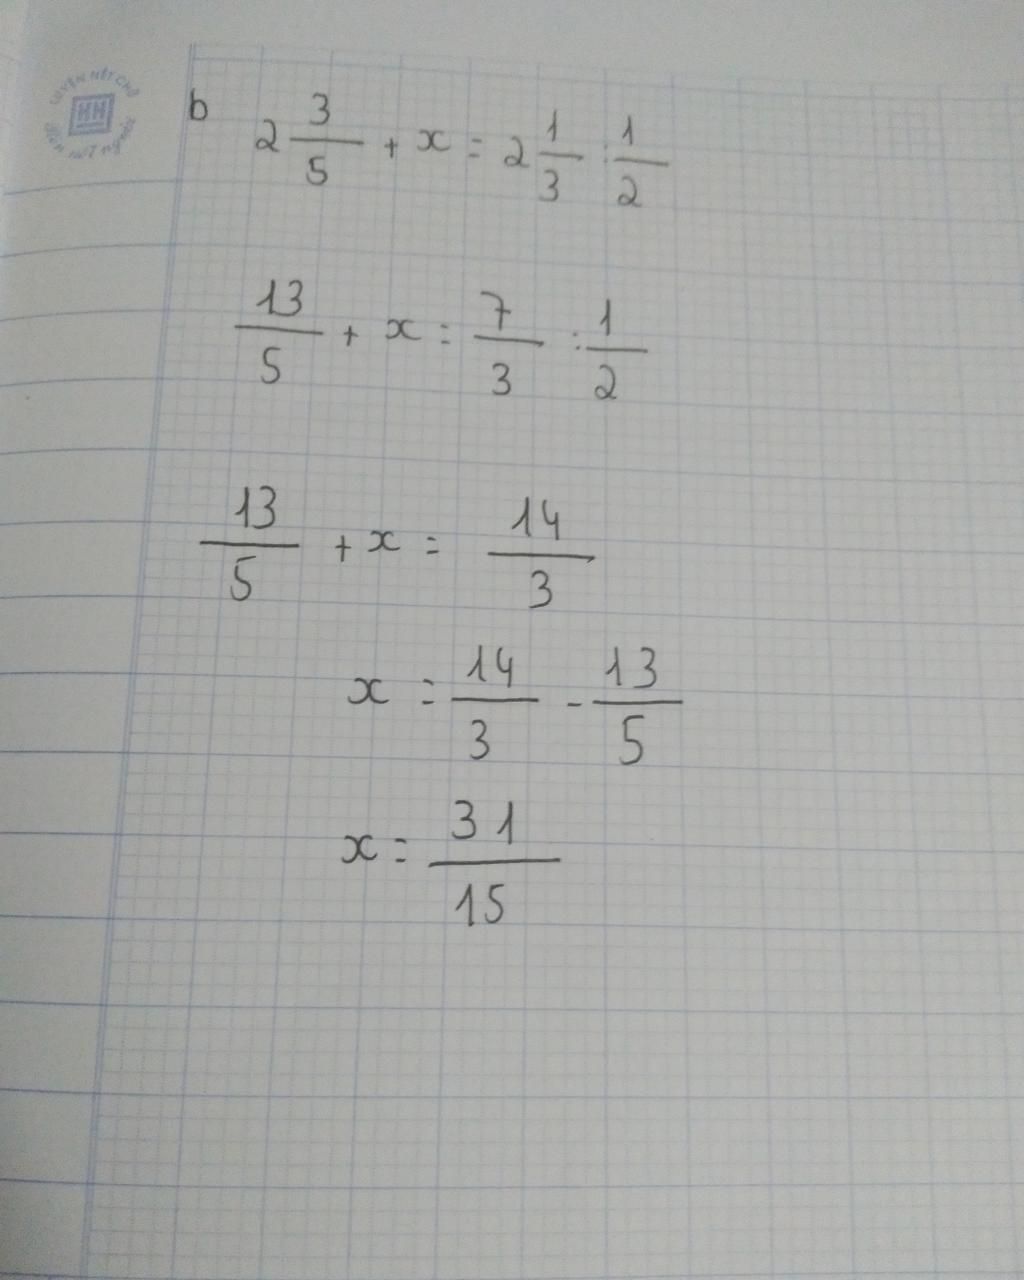 LUYỆN NÉT CHỮ
HH
b 2 3/5 + x = 2 1/3 : 1/2
13/5 + x = 7/3 : 1/2
13/5 + x = 14/3
x = 14/3 - 13/5
x = 31/15